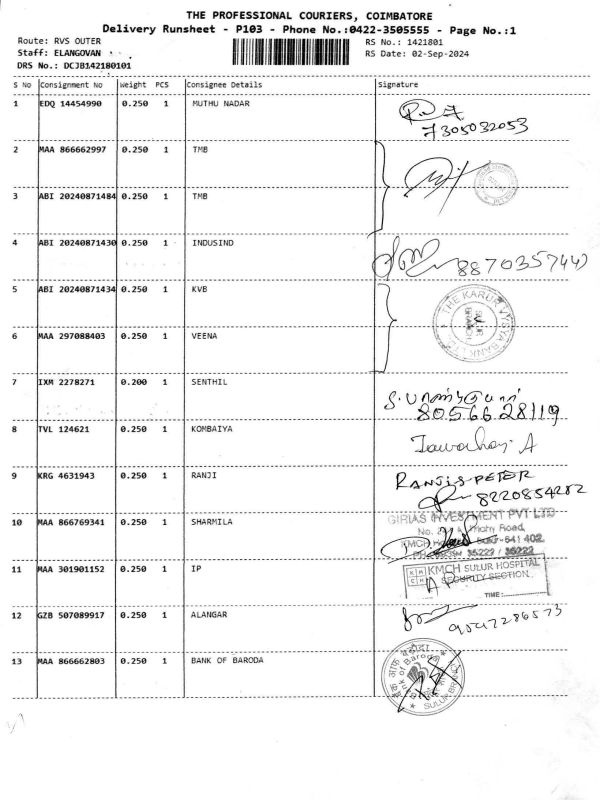 THE PROFESSIONAL COURIERS, COIMBATORE
Delivery Runsheet - P103 - Phone No.:0422-3505555 - Page No.:1
Route: RVS OUTER
RS No.: 1421801
Staff: ELANGOVAN
RS Date: 02-Sep-2024
DRS No.: DCJB142180101
S No Consignment No Weight PCS Consignee Details Signature
1 EDQ 14454990 0.250 1 MUTHU NADAR
7305032053
2 MAA 866662997 0.250 1 TMB
3 ABI 20240871484 0.250 1 TMB
4 ABI 20240871430 0.250 1 INDUSIND
8870357440
5 ABI 20240871434 0.250 1 KVB
THE KARUR VYSYA BANK LTD.
SULUR
BRANCH
6 MAA 297088403 0.250 1 VEENA
7 IXM 2278271 0.200 1 SENTHIL
8056628119
8 TVL 124621 0.250 1 KOMBAIYA
9 KRG 4631943 0.250 1 RANJI
RANJIS PETER
8220854282
10 MAA 866769341 0.250 1 SHARMILA
GIRIAS INVESTMENT PVT LTD
Road,
641 402.
35222 / 35222
11 MAA 301901152 0.250 1 IP
KMCH SULUR HOSPITAL
SECURITY SECTION
TIME:
12 GZB 507089917 0.250 1 ALANGAR
9547286573
13 MAA 866662803 0.250 1 BANK OF BARODA
बैंक ऑफ़ बड़ौदा
Bank of Baroda
SULUR BRANCH